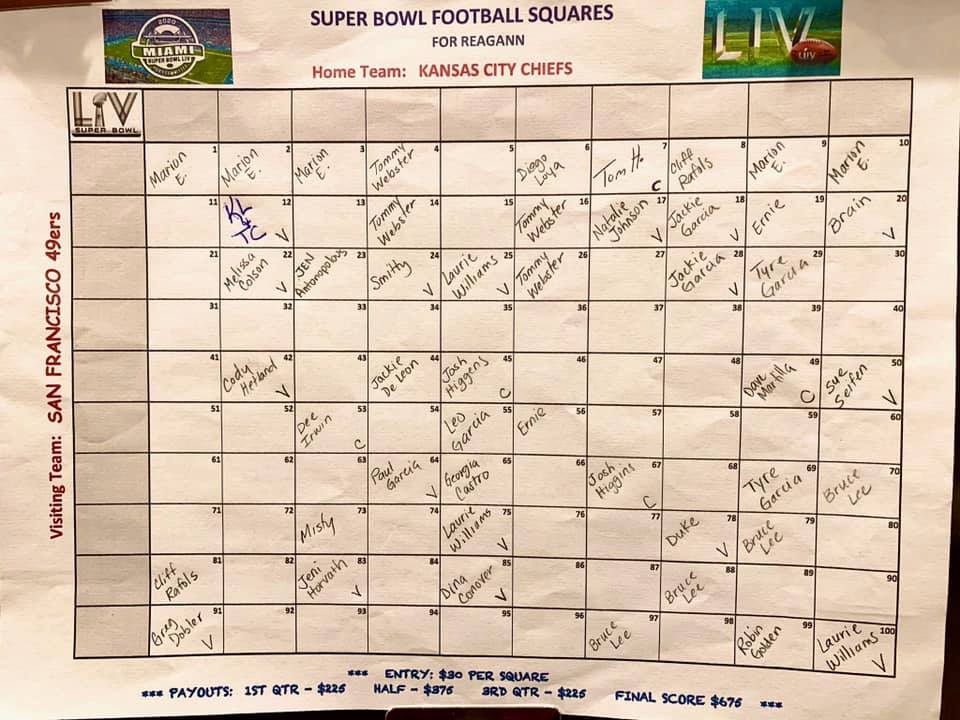 2020
MIAMI
SUPER BOWL LIV
LIV
LIV
SUPER BOWL FOOTBALL SQUARES
FOR REAGANN
Home Team: KANSAS CITY CHIEFS
LIV
SUPER BOWL
Visiting Team: SAN FRANCISCO 49ers
1 Marion E.
2 Marion E.
3 Marion E.
4 Tommy Webster
5
6 Diego Loya
7 Tom H. C
8 Cliff Rafols
9 Marion E.
10 Marion E.
11
12 KL & TC V
13
14 Tommy Webster
15
16 Tommy Webster
17 Natalie Johnson V
18 Jackie Garcia V
19 Ernie
20 Brain V
21
22 Melissa Colson V
23 JEN Antonopolous
24 Smitty V
25 Laurie Williams V
26 Tommy Webster
27
28 Jackie Garcia V
29 Tyre Garcia
30
31
32
33
34
35
36
37
38
39
40
41
42 Cody Hetland V
43
44 Jackie De Leon
45 Josh Higgens C
46
47
48
49 Dave Martilla C
50 Sue Seifen V
51
52
53 Dee Irwin C
54
55 Leo Garcia
56 Ernie
57
58
59
60
61
62
63
64 Paul Garcia V
65 Georgia Castro
66
67 Josh Higgins C
68
69 Tyre Garcia
70 Bruce Lee
71
72
73 Misty
74
75 Laurie Williams V
76
77
78 Duke V
79 Bruce Lee
80
81 Cliff Rafols
82
83 Jeni Horvath V
84
85 Dina Conover V
86
87
88 Bruce Lee
89
90
91 Greg Dobler V
92
93
94
95
96
97 Bruce Lee
98
99 Robin Golden
100 Laurie Williams V
*** ENTRY: $30 PER SQUARE
*** PAYOUTS: 1ST QTR - $225 HALF - $375 3RD QTR - $225 FINAL SCORE $675 ***